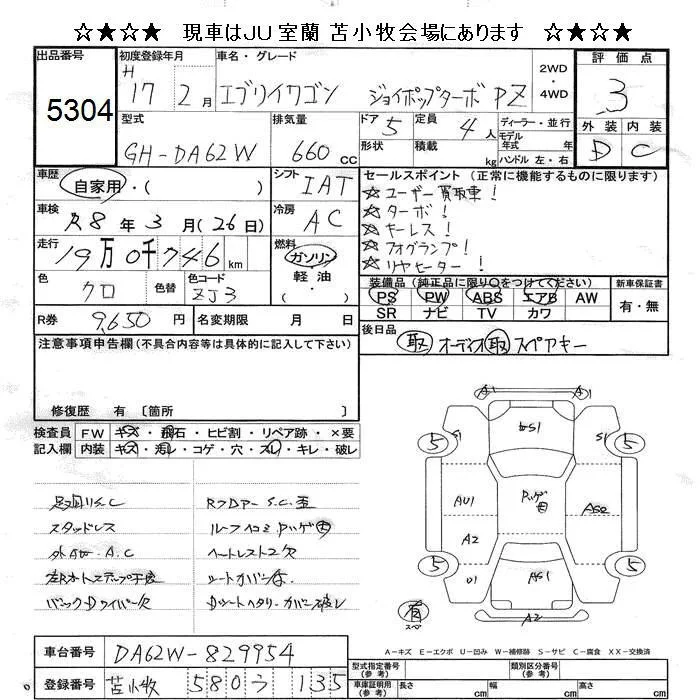 ☆★☆★ 現車はJU室蘭 苫小牧会場にあります ☆★☆★
出品番号 初度登録年月 車名・グレード 2WD・4WD 評価点
5304 H17 2月 エブリイワゴン ジョイポップターボ PZ 3
型式 排気量 ドア 定員 ディーラー・並行 外装 内装
GH-DA62W 660cc 5 4人 モデル年式 年式 D C
形状 積載 kg ハンドル 左・右
車歴 シフト セールスポイント(正常に機能するものに限ります)
自家用・( ) IAT ☆ユーザー買取車!
車検 冷房 ☆ターボ!
R8年3月(26日) AC ☆キーレス!
走行 燃料 ☆フォグランプ!
19万0千746km ガソリン ☆リヤヒーター!
軽油・
色 色替 色コード 装備品(純正品に限り○をつけてください) 新車保証書
クロ ZJ3 PS PW ABS エアB AW 有・無
SR ナビ TV カワ
R券 9,650円 名変期限 月 日 後日品
取 オーディオ 取 スペアキー
注意事項申告欄(不具合内容等は具体的に記入して下さい)
修復歴 有 〔箇所 〕
検査員 FW キズ・飛石・ヒビ割・リペア跡・×要
記入欄 内装 キズ・汚レ・コゲ・穴・スレ・キレ・破レ
足回りS.C
スタッドレス
バックDワイパー欠
RFDアーS.C.歪
ルーフヘコミ
ヘッドレスト2欠
シートカバー
A1 A1
S1 S1
5 5
AU1
A2
5 5
AS1
A2
有
スペ
A-キズ E-エクボ U-凹み W-補修跡 S-サビ C-腐食 XX-交換済
車台番号 DA62W-829954 型式指定番号(参考) 類別区分番号(参考)
登録番号 苫小牧 580 う 135 車庫証明用(参考) 長さ cm 幅 cm 高さ cm